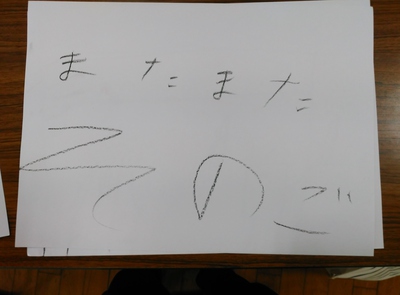 またまた
そのご